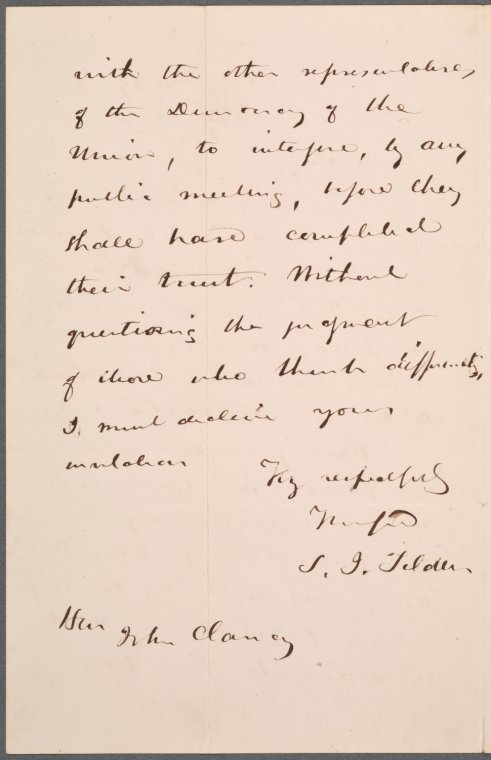 with the other representatives
of the Democracy of the
Union, to interfere, by any
public meeting, before they
shall have completed
their trust. Without
questioning the judgment
of those who think differently,
I must decline your
invitation
Very respectfully
S. J. Tilden
Hon John Clancy